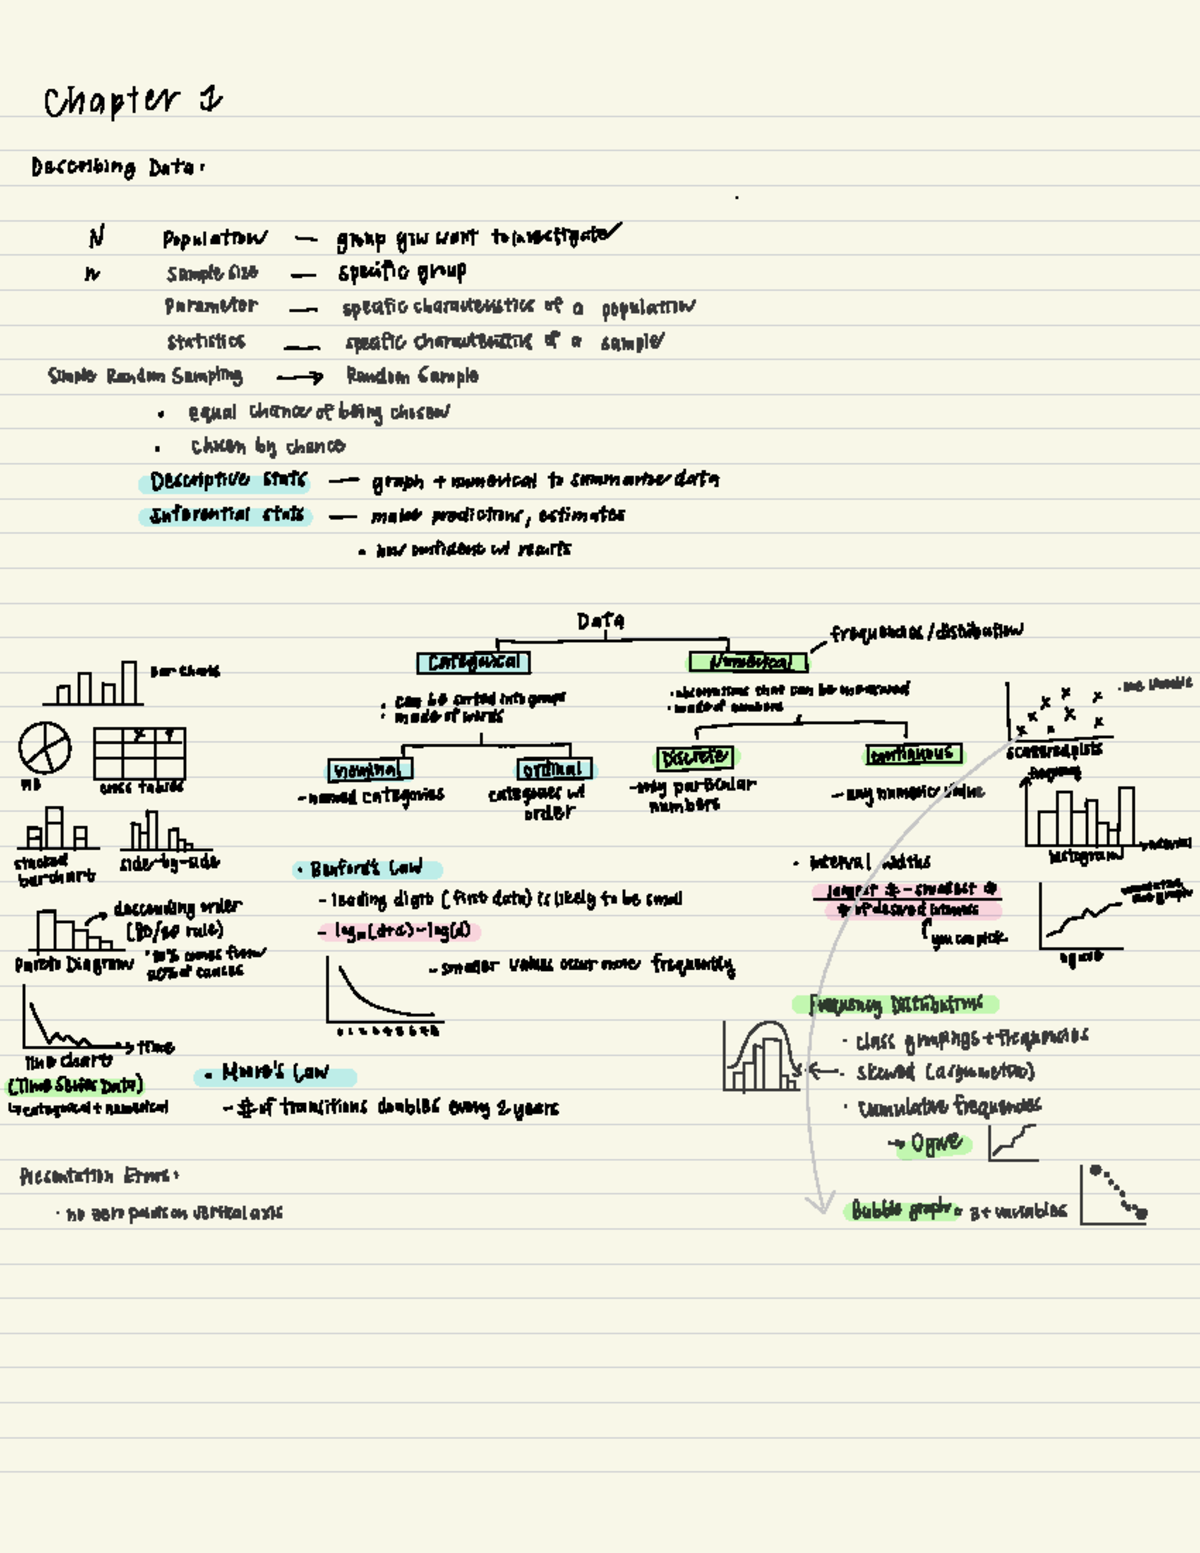 Chapter 1
Describing Data:
N Population — group you want to investigate
n Sample size — specific group
Parameter — specific characteristics of a population
Statistics — specific characteristics of a sample
Simple Random Sampling → Random Sample
• equal chance of being chosen
• chosen by chance
Descriptive stats — graph + numerical to summarize data
Inferential stats — make predictions, estimates
• how confident w/ results
Data
frequencies/distribution
Categorical
Numerical
• can be sorted into groups
• made of words
• observations that can be measured
• made of numbers
Nominal
ordinal
Discrete
continuous
- named categories
categories w/
order
- only particular
numbers
- any numeric value
Bar charts
Pie
cross tables
stacked
bar chart
side-by-side
descending order
(80/20 rule)
Pareto Diagram
• 80% comes from
20% of causes
→ Time
Time charts
(Time Series Data)
↳ categorical + numerical
• Benford's Law
- leading digit (first data) is likely to be small
- log (d+1) - log(d)
- smaller values occur more frequently
• Moore's Law
- # of transitions doubles every 2 years
scattered plots
frequency
histogram
ogive
• interval widths
largest # - smallest #
# of desired
you can pick
Frequency Distributions
• class groupings + frequencies
• skewed (asymmetric)
• cumulative frequencies
→ Ogive
Bubble graph = 3+ variables
Presentation Errors:
• no zero point on vertical axis